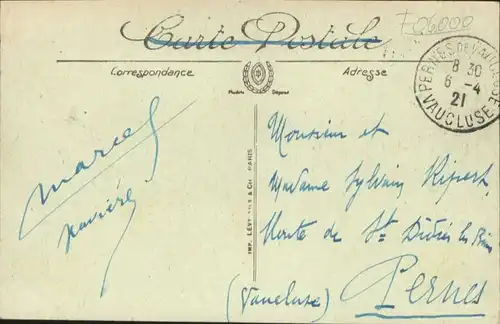 F06000
Carte Postale
Correspondance
Adresse
Modèle Déposé
PERNES
8 30
6 -4
21
VAUCLUSE
Marcel
Xavière
Monsieur et
Madame Sylvain Ripert,
Route de St Didier les Bains
Pernes
(Vaucluse)
IMP. LÉVY FILS & Cie PARIS